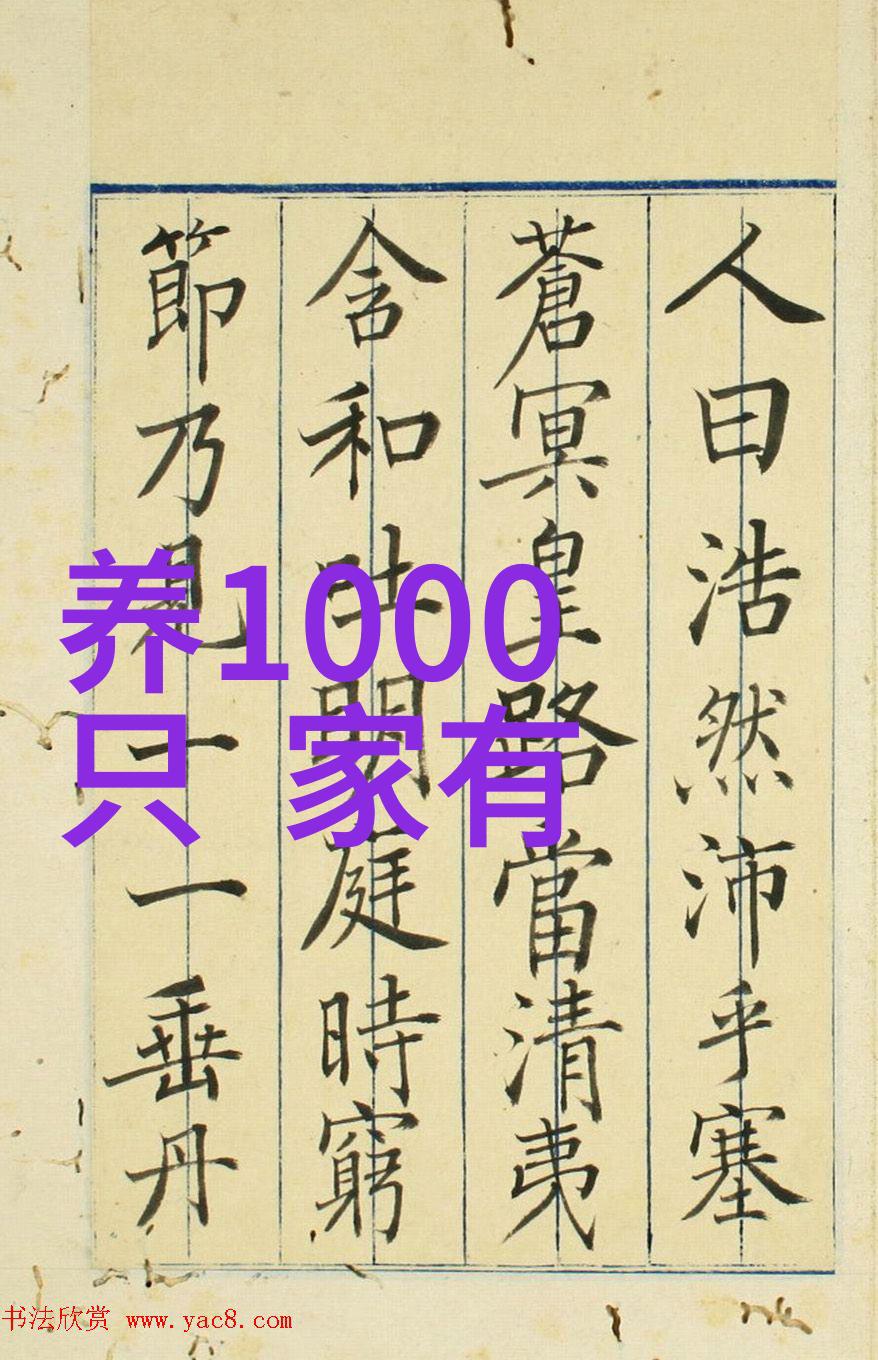 人曰浩然沛乎塞
蒼冥皇路當清夷
含和吐明庭時窮
節乃見一一垂丹
养1000
只 家有
书法欣赏 www.yac8.com